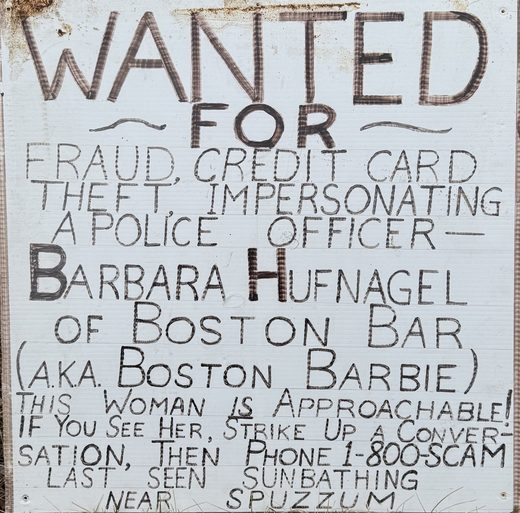 WANTED
~ FOR ~
FRAUD, CREDIT CARD
THEFT, IMPERSONATING
A POLICE OFFICER —
BARBARA HUFNAGEL
OF BOSTON BAR
(A.K.A. BOSTON BARBIE)
THIS WOMAN IS APPROACHABLE!
IF YOU SEE HER, STRIKE UP A CONVER-
SATION, THEN PHONE 1-800-SCAM
LAST SEEN SUNBATHING
NEAR SPUZZUM